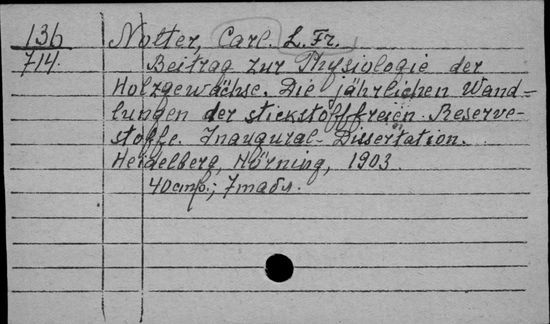 136 Nolter, Carl. L. Fr.
714. Beitrag zur Physiologie der
Holzgewächse. Die jährlichen Wand=
lungen der stickstofffreien Reserve-
stoffe. Inaugural-Dissertation.
Heidelberg, Hörning, 1903.
40 стр.; 7 табл.